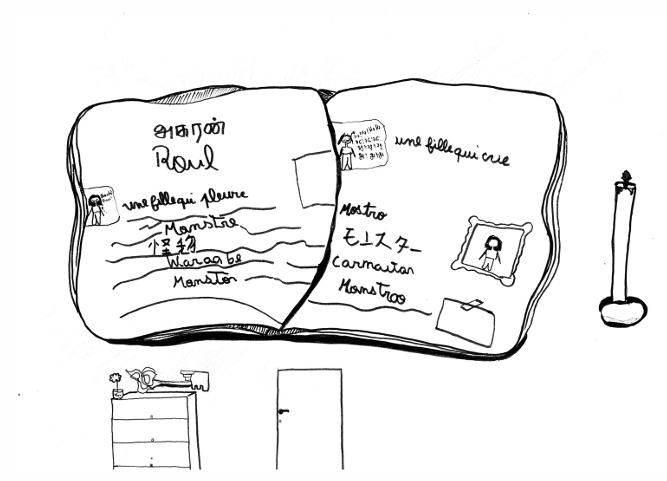 அசுரன்
Roul
une fille qui pleure
Monstre
怪物
Waraabe
Monstor
une fille qui crie
Mostro
モエスター
Carmaitan
Monstrao